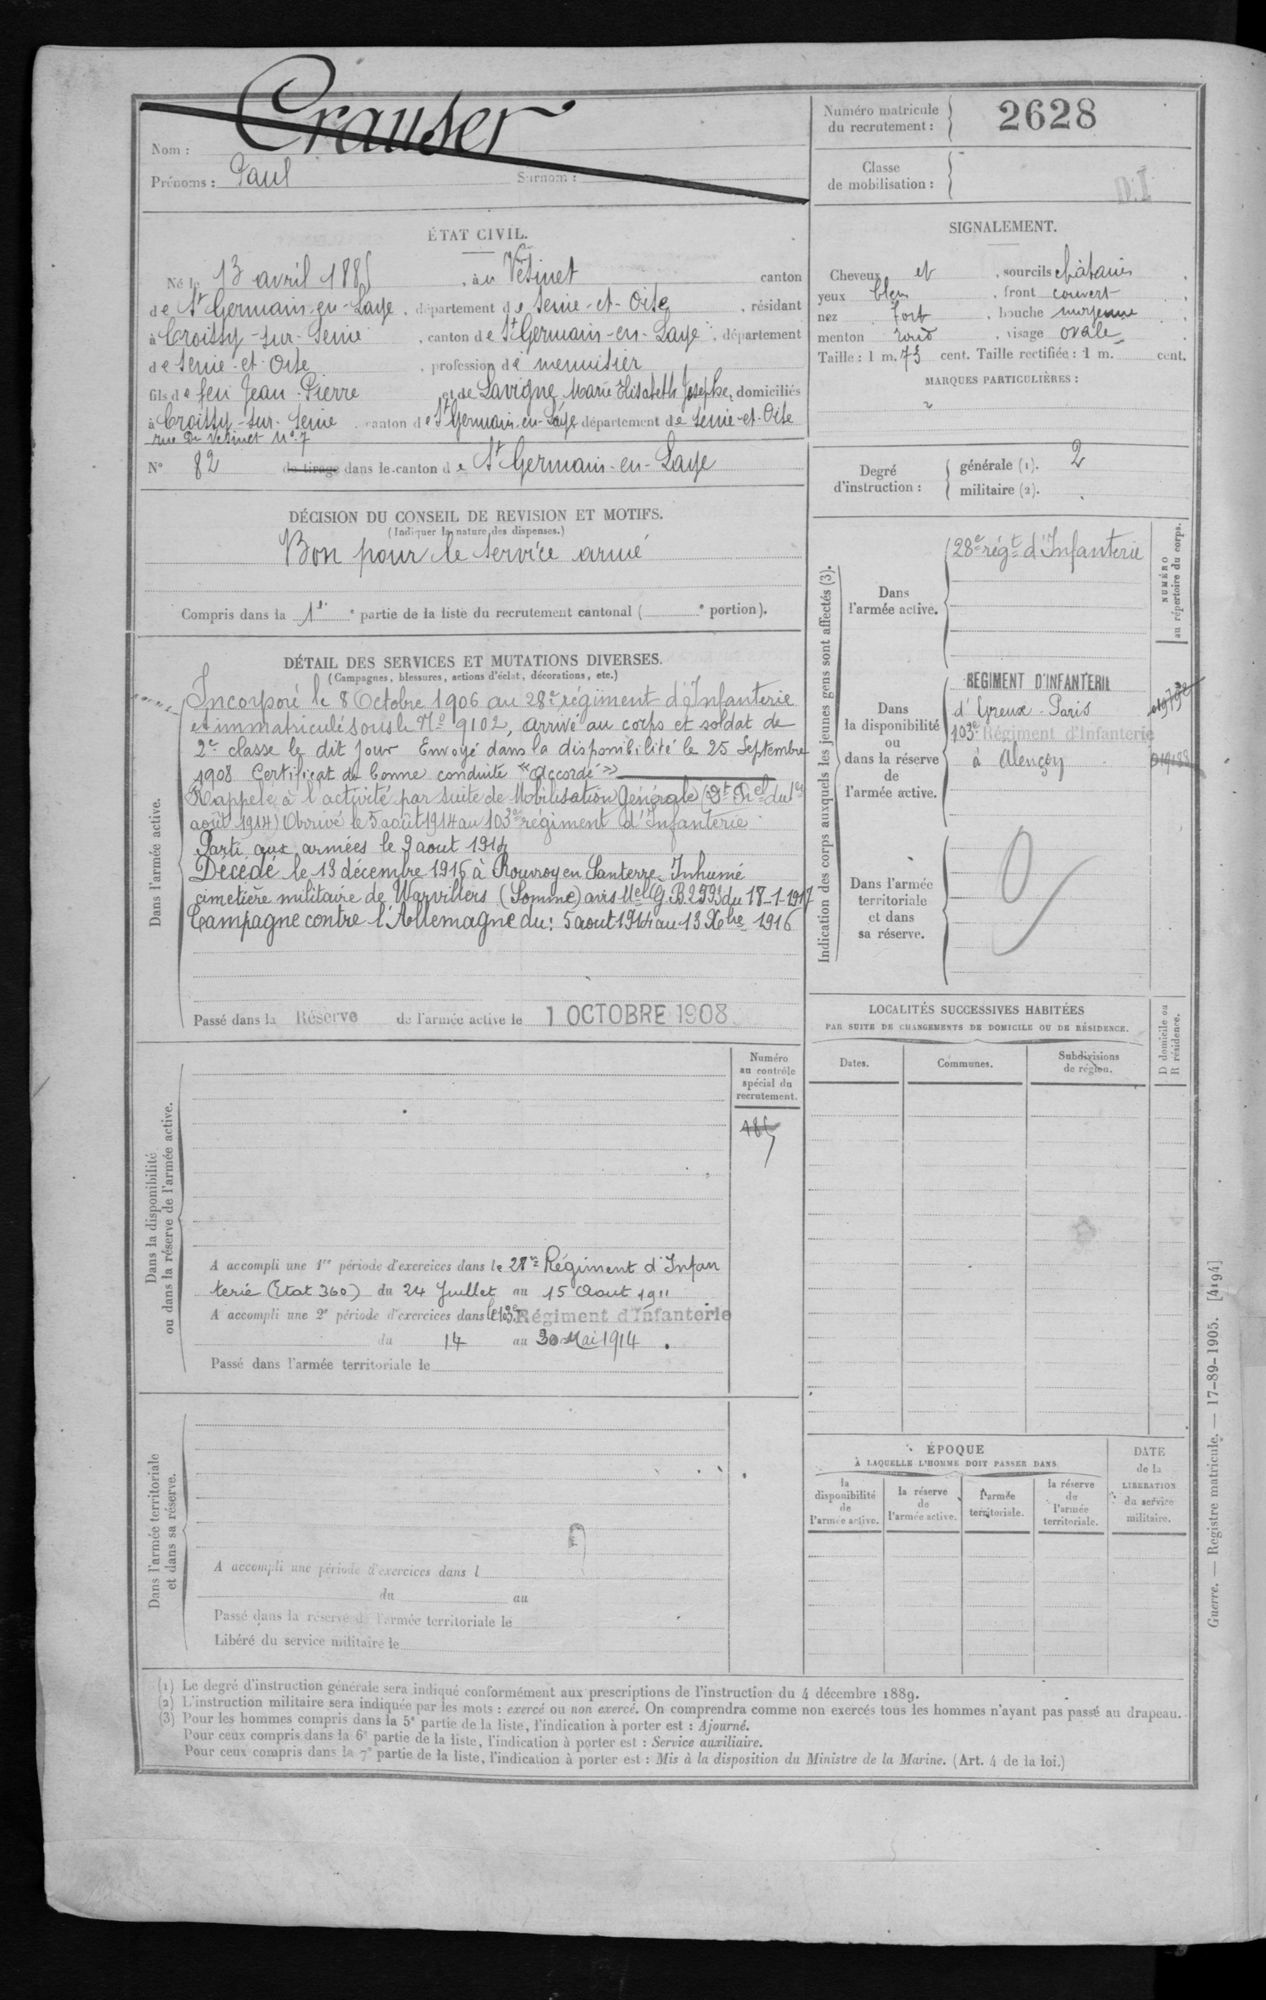 Nom : Crauser
Prénoms : Paul Surnom :
Numéro matricule du recrutement : 2628
Classe de mobilisation :
ÉTAT CIVIL.
Né le 13 avril 1885, à u Vésinet canton
de St Germain-en-Laye, département de Seine-et-Oise, résidant
à Croissy-sur-Seine, canton de St Germain-en-Laye, département
de Seine-et-Oise, profession de menuisier
fils de feu Jean-Pierre et de Lavigne, Marie Elisabeth Josephe, domiciliés
à Croissy-sur-Seine canton de St Germain-en-Laye département de Seine-et-Oise
rue du Vésinet No 7
N° 82 de tirage dans le canton de St Germain-en-Laye
SIGNALEMENT.
Cheveux et, sourcils châtains,
yeux bleu, front couvert,
nez fort, bouche moyenne,
menton rond, visage ovale
Taille : 1 m. 73 cent. Taille rectifiée : 1 m. cent.
MARQUES PARTICULIÈRES :
Degré d'instruction :
générale (1). 2
militaire (2).
DÉCISION DU CONSEIL DE REVISION ET MOTIFS.
(Indiquer la nature des dispenses.)
Bon pour le service armé
Compris dans la 1re partie de la liste du recrutement cantonal ( e portion).
DÉTAIL DES SERVICES ET MUTATIONS DIVERSES.
(Campagnes, blessures, actions d'éclat, décorations, etc.)
Dans l'armée active.
Incorporé le 8 Octobre 1906 au 28e régiment d'Infanterie
et immatriculé sous le No 9102, arrivé au corps et soldat de
2e classe le dit jour Envoyé dans la disponibilité le 25 Septembre
1908 Certificat de bonne conduite "Accordé"
Rappelé à l'activité par suite de Mobilisation Générale (Dt Prel du 1er
août 1914) Arrivé le 5 août 1914 au 103e régiment d'Infanterie
Parti aux armées le 9 aout 1914
Décédé le 13 décembre 1916 à Rouvroy en Santerre. Inhumé
cimetière militaire de Warvillers (Somme) avis Mel G.B. 2993 du 18-1-1917
Campagne contre l'Allemagne du: 5 aout 1914 au 13 Xbre 1916
Passé dans la Réserve de l'armée active le 1 OCTOBRE 1908
Indication des corps auxquels les jeunes gens sont affectés (3).
NUMÉRO au répertoire du corps.
Dans l'armée active.
28e régt d'Infanterie
Dans la disponibilité ou dans la réserve de l'armée active.
RÉGIMENT D'INFANTERIE
d'Evreux-Paris
103e Régiment d'Infanterie
à Alençon
Dans l'armée territoriale et dans sa réserve.
LOCALITÉS SUCCESSIVES HABITÉES
PAR SUITE DE CHANGEMENTS DE DOMICILE OU DE RÉSIDENCE.
Dates. Communes. Subdivisions de région. D domicile ou R résidence.
Numéro au contrôle spécial du recrutement.
Dans la disponibilité ou dans la réserve de l'armée active.
A accompli une 1re période d'exercices dans le 28e Régiment d'Infan
terie (Etat 360) du 24 Juillet au 15 Aout 1911
A accompli une 2e période d'exercices dans le 103e Régiment d'Infanterie
du 14 au 30 Mai 1914.
Passé dans l'armée territoriale le
Dans l'armée territoriale et dans sa réserve.
A accompli une période d'exercices dans l
du au
Passé dans la réserve de l'armée territoriale le
Libéré du service militaire le
ÉPOQUE
À LAQUELLE L'HOMME DOIT PASSER DANS
la disponibilité de l'armée active.
la réserve de l'armée active.
l'armée territoriale.
la réserve de l'armée territoriale.
DATE de la LIBÉRATION du service militaire.
(1) Le degré d'instruction générale sera indiqué conformément aux prescriptions de l'instruction du 4 décembre 1889.
(2) L'instruction militaire sera indiquée par les mots : exercé ou non exercé. On comprendra comme non exercés tous les hommes n'ayant pas passé au drapeau.
(3) Pour les hommes compris dans la 5e partie de la liste, l'indication à porter est : Ajourné.
Pour ceux compris dans la 6e partie de la liste, l'indication à porter est : Service auxiliaire.
Pour ceux compris dans la 7e partie de la liste, l'indication à porter est : Mis à la disposition du Ministre de la Marine. (Art. 4 de la loi.)
Guerre. — Registre matricule. — 17-89-1905. [4194]